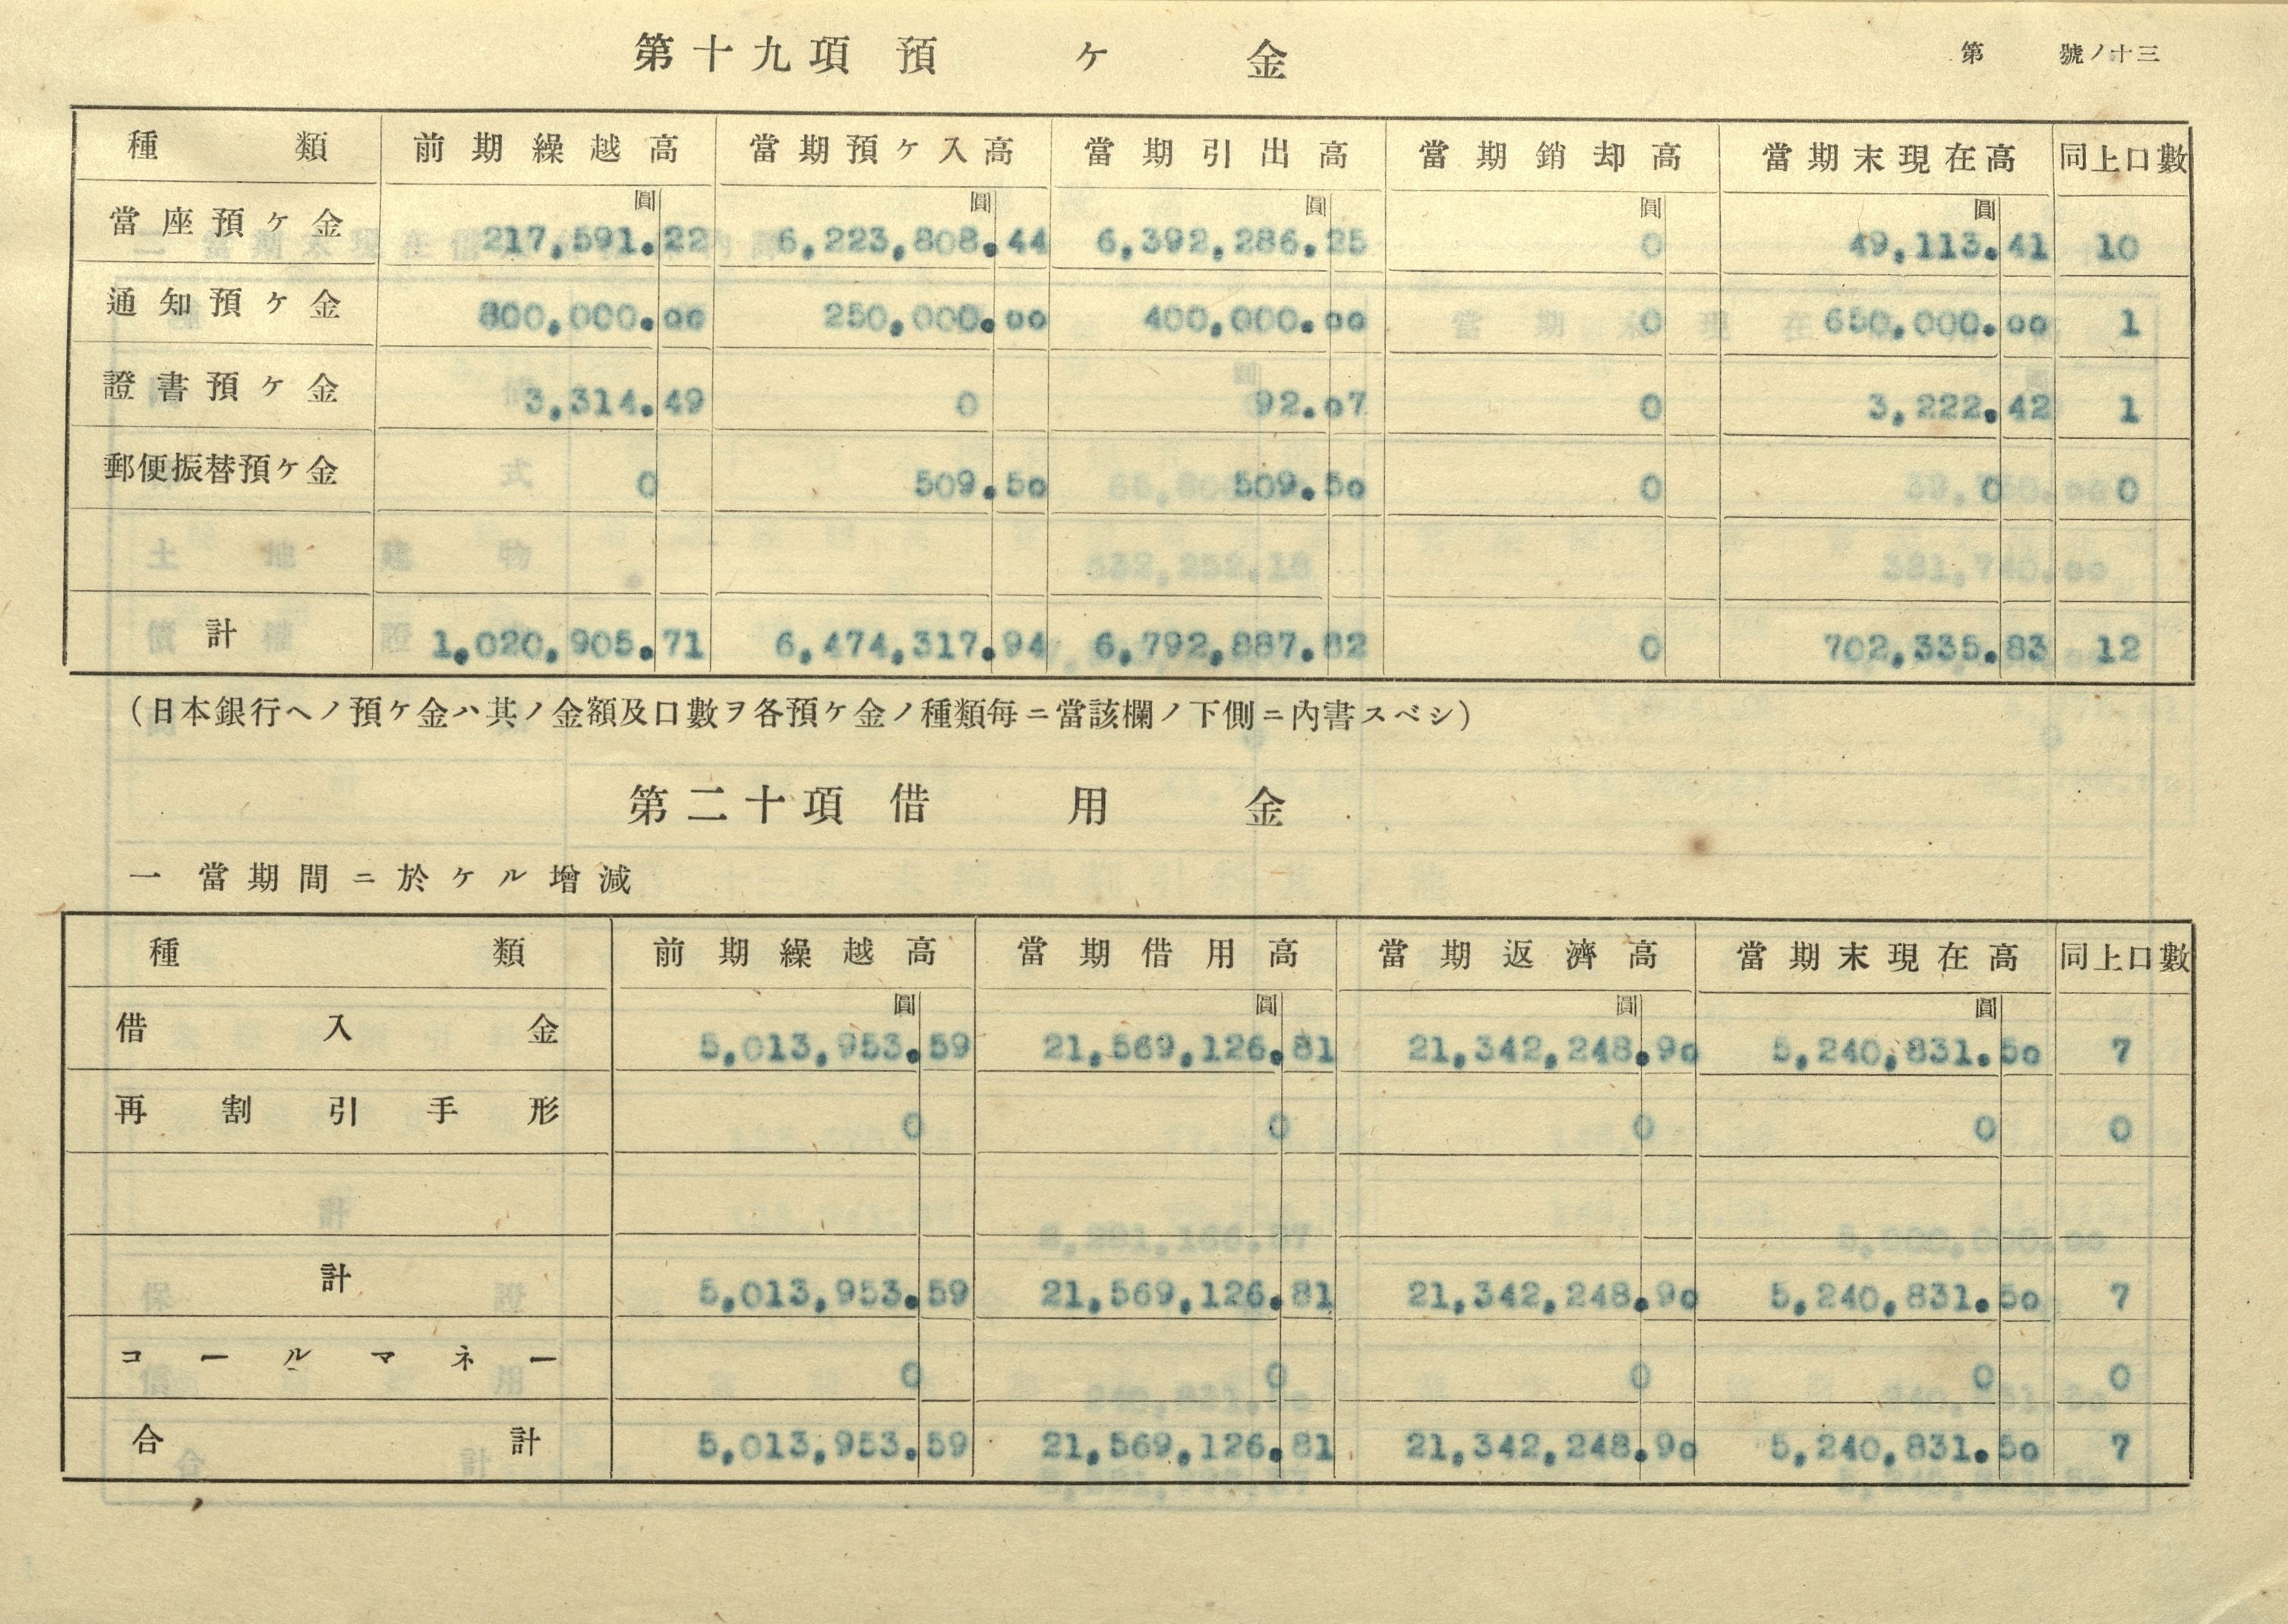 第十九項 預ケ金 第 號ノ十三
種類 前期繰越高 當期預ケ入高 當期引出高 當期銷却高 當期末現在高 同上口數
圓 圓 圓 圓 圓
當座預ケ金 217,591.22 6,223,808.44 6,392,286.25 0 49,113.41 10
通知預ケ金 800,000.00 250,000.00 400,000.00 0 650,000.00 1
證書預ケ金 3,314.49 0 92.07 0 3,222.42 1
郵便振替預ケ金 0 509.50 509.50 0 0 0
計 1,020,905.71 6,474,317.94 6,792,887.82 0 702,335.83 12
(日本銀行ヘノ預ケ金ハ其ノ金額及口數ヲ各預ケ金ノ種類每ニ當該欄ノ下側ニ內書スベシ)
第二十項 借用金
一 當期間ニ於ケル增減
種類 前期繰越高 當期借用高 當期返濟高 當期末現在高 同上口數
圓 圓 圓 圓
借入金 5,013,953.59 21,569,126.81 21,342,248.90 5,240,831.50 7
再割引手形 0 0 0 0 0
計 5,013,953.59 21,569,126.81 21,342,248.90 5,240,831.50 7
コールマネー 0 0 0 0 0
合計 5,013,953.59 21,569,126.81 21,342,248.90 5,240,831.50 7